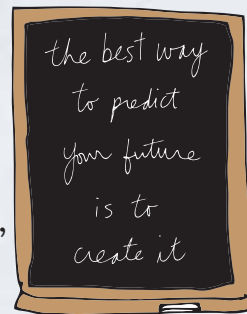 the best way
to predict
your future
is to
create it
,